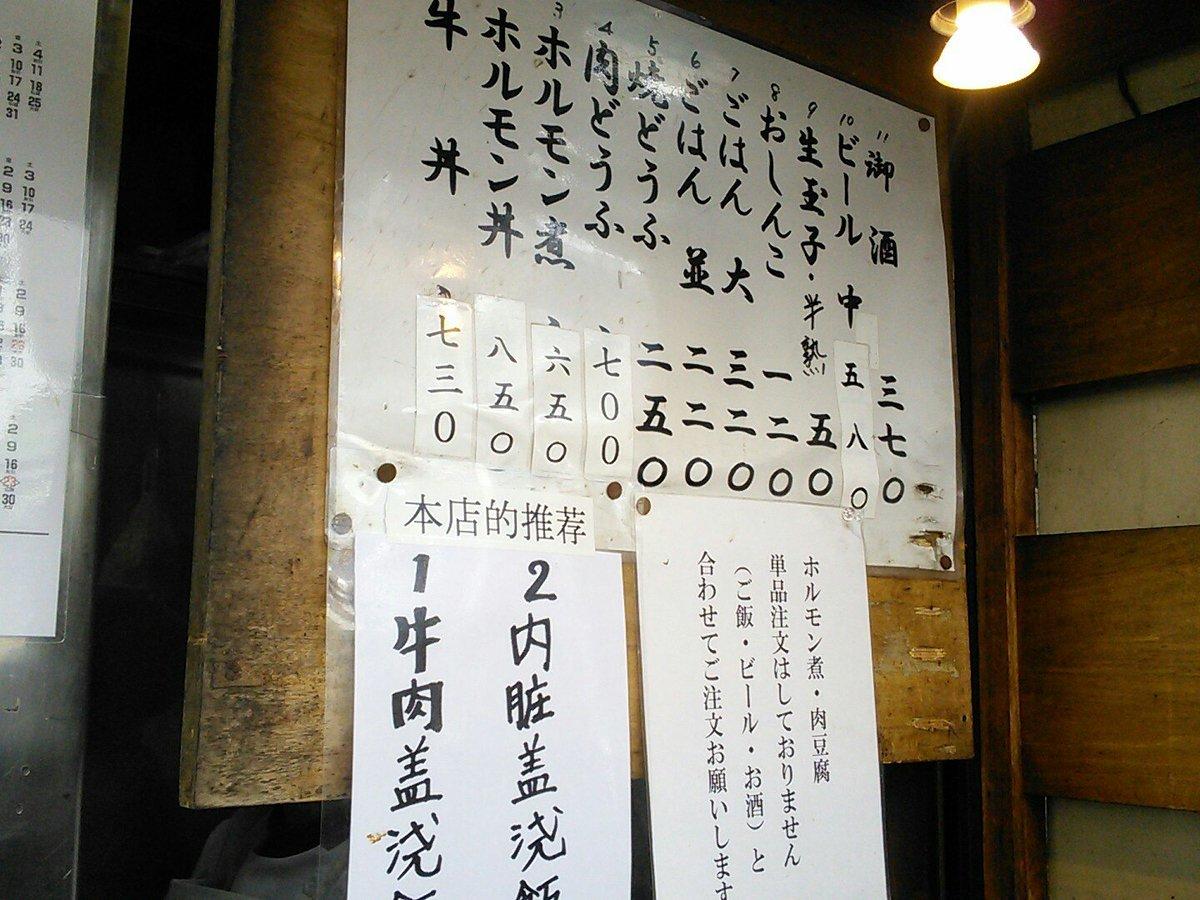 11 御酒 三七〇
10 ビール 中 五八〇
9 生玉子・半熟 五〇
8 おしんこ 一二〇
7 ごはん 大 三二〇
6 ごはん 並 二二〇
5 焼どうふ 二五〇
4 肉どうふ 七〇〇
3 ホルモン煮 六五〇
ホルモン丼 八五〇
牛丼 七三〇
本店的推荐
1牛肉盖浇
2内脏盖浇飯
ホルモン煮・肉豆腐
単品注文はしておりません
（ご飯・ビール・お酒）と
合わせてご注文お願いします